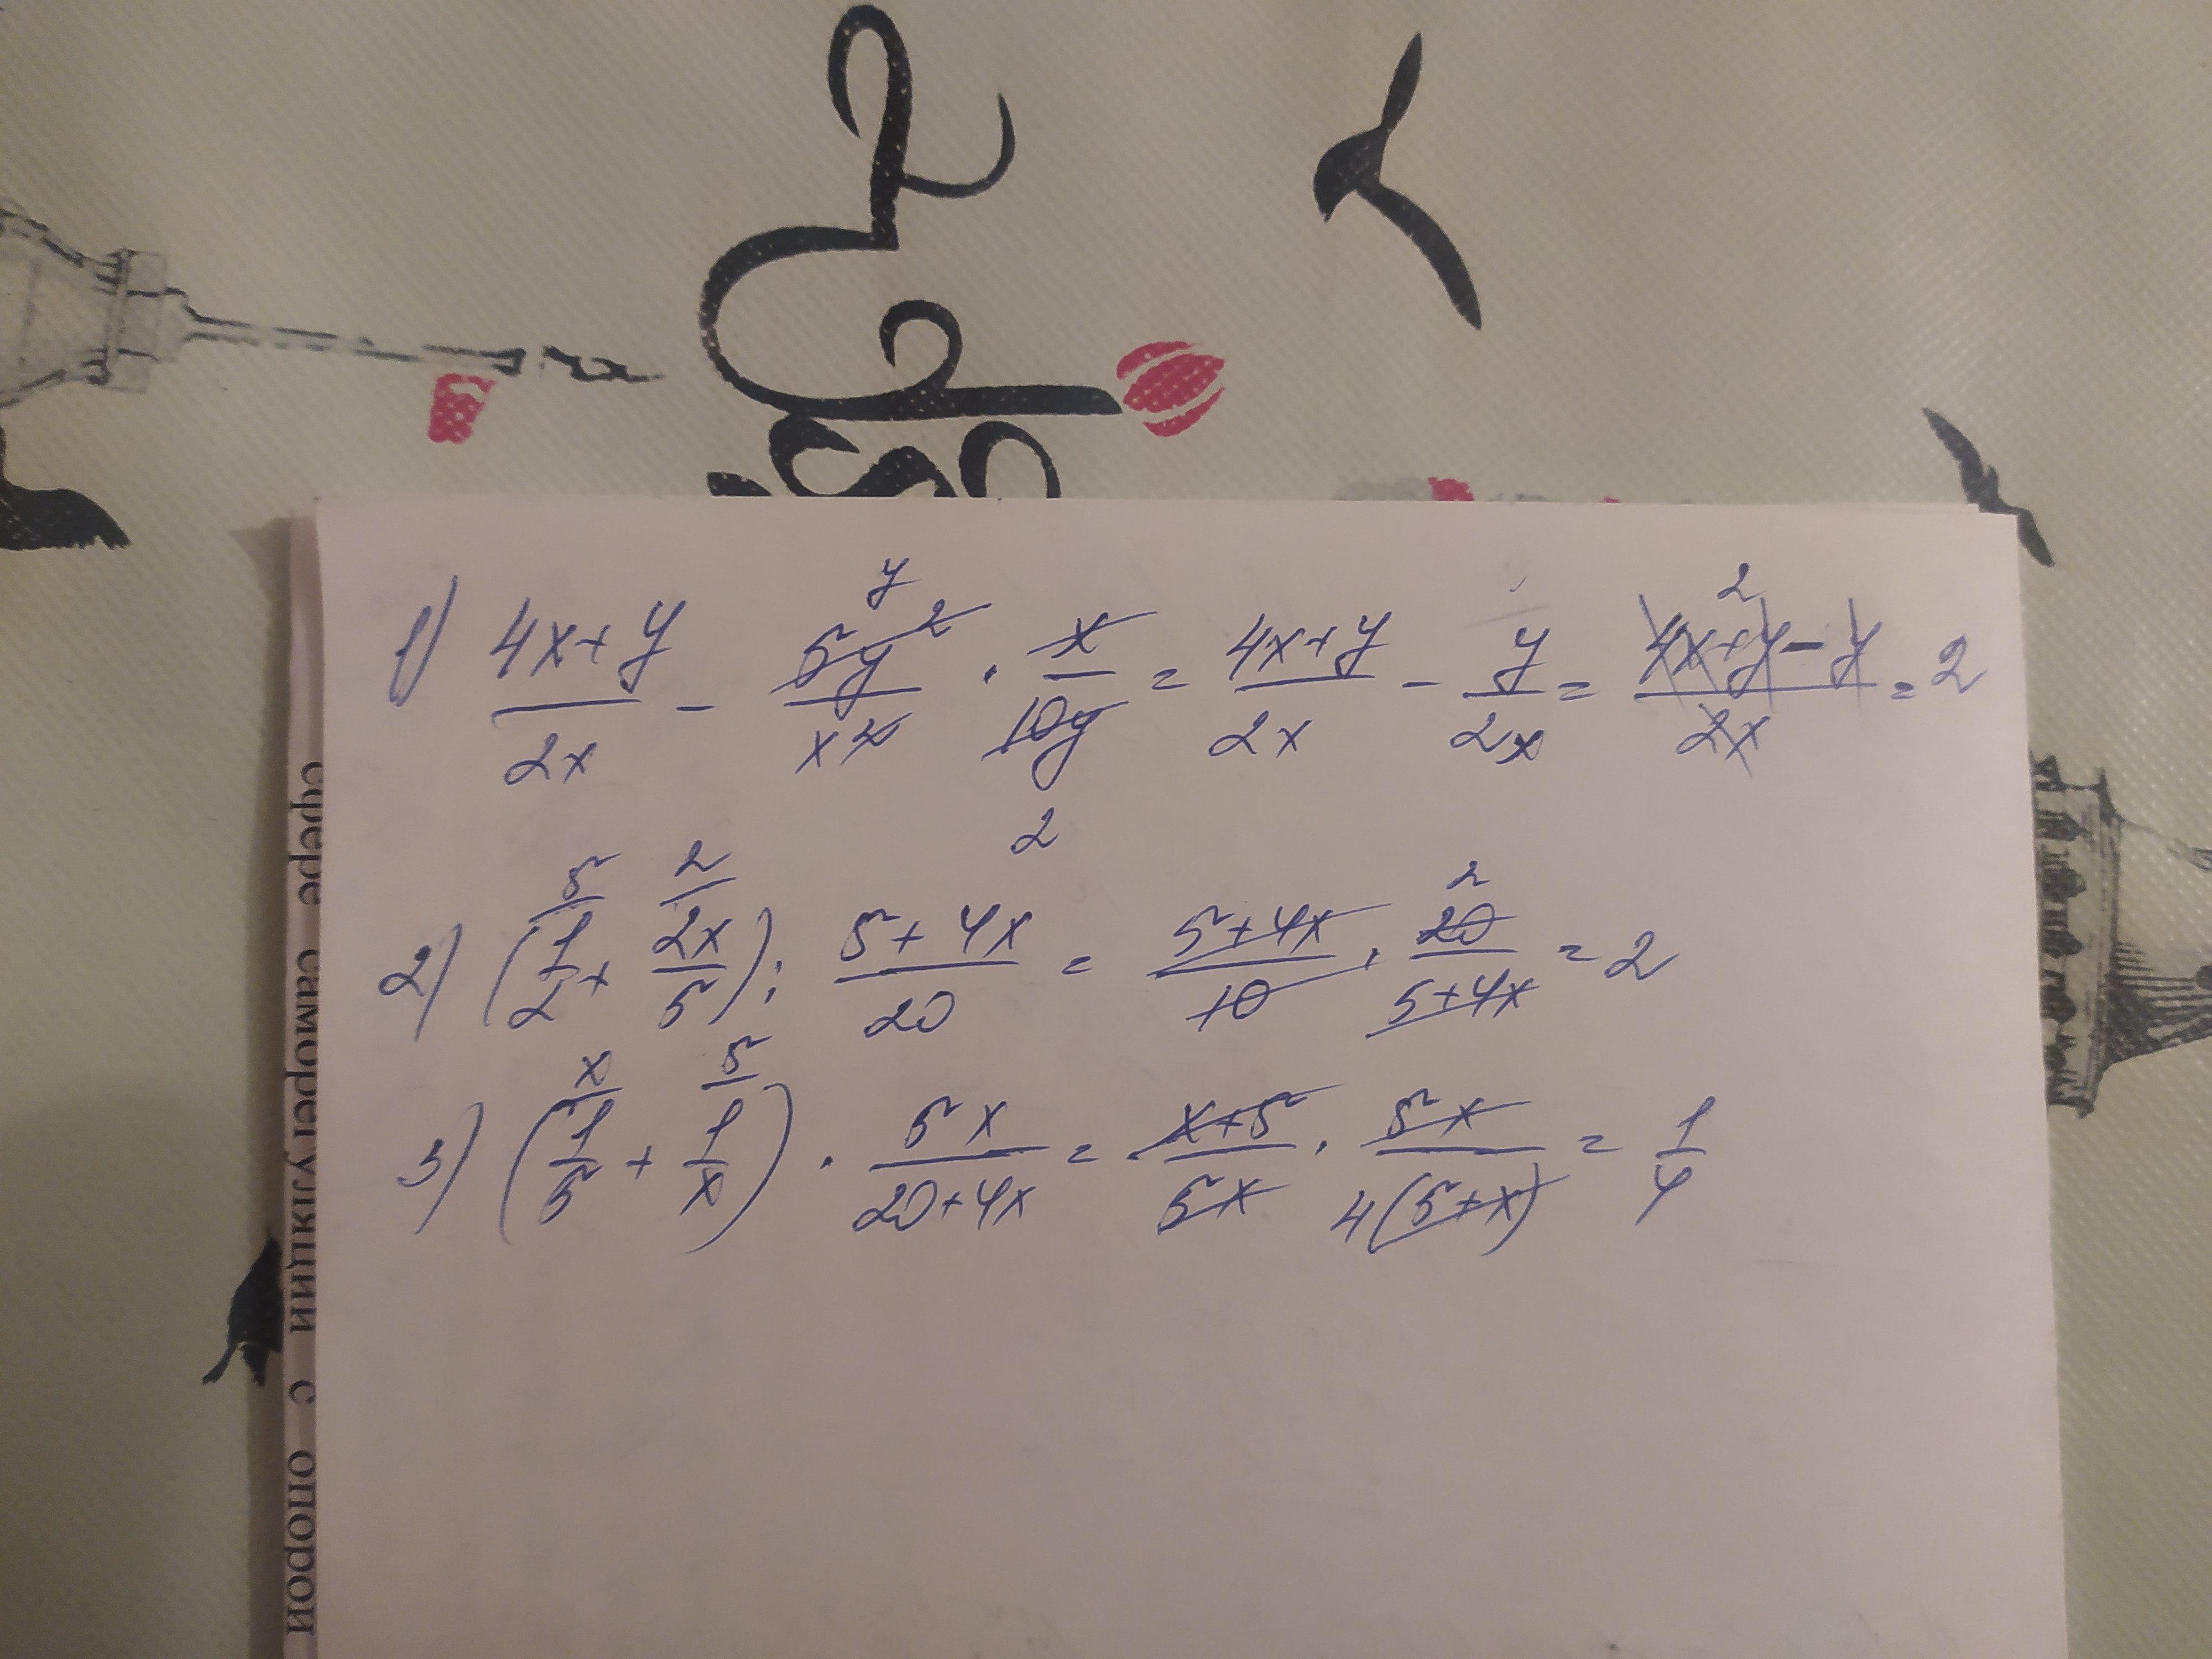 1) (4x+y)/(2x) - (5y²)/(x²) · x/(10y) = (4x+y)/(2x) - y/(2x) = (4x+y-y)/(2x) = 2
2) (1/2 + 2x/5) : (5+4x)/20 = (5+4x)/10 · 20/(5+4x) = 2
3) (1/5 + 1/x) · 5x/(20+4x) = (x+5)/(5x) · 5x/(4(5+x)) = 1/4
сфере саморегуляции с опорой